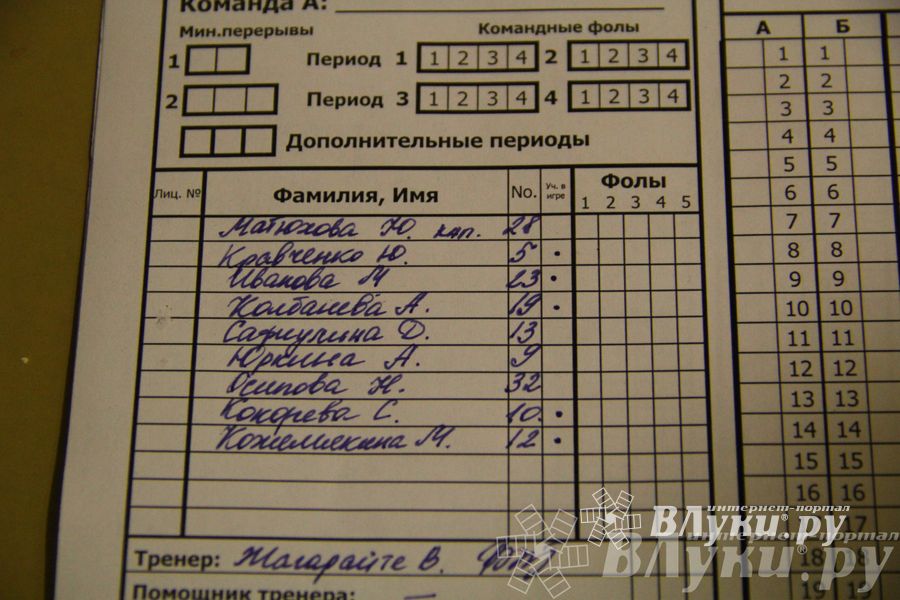 Команда А:
Мин.перерывы Командные фолы
1 Период 1 1 2 3 4 2 1 2 3 4
2 Период 3 1 2 3 4 4 1 2 3 4
Дополнительные периоды
Лиц. № Фамилия, Имя No. Уч. в игре Фолы
1 2 3 4 5
Матюхова Ю. кап. 28
Кравченко Ю. 5 •
Иванова М 23 •
Колбанева А. 19 •
Сафиулина Д. 13
Юркина А. 9
Осипова Н. 32
Кокорева С. 10. •
Кожемякина М. 12 •
Тренер: Жагарайте В.
Помощник тренера: —
А Б
1 1
2 2
3 3
4 4
5 5
6 6
7 7
8 8
9 9
10 10
11 11
12 12
13 13
14 14
15 15
16 16
17
18 18
19 19
интернет-портал
ВЛуки.ру
интернет-портал
ВЛуки.ру